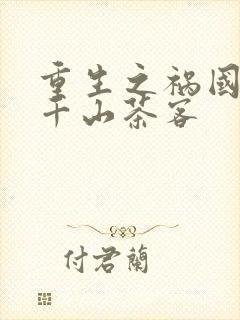 重生之祸國
千山茶客
付君蘭